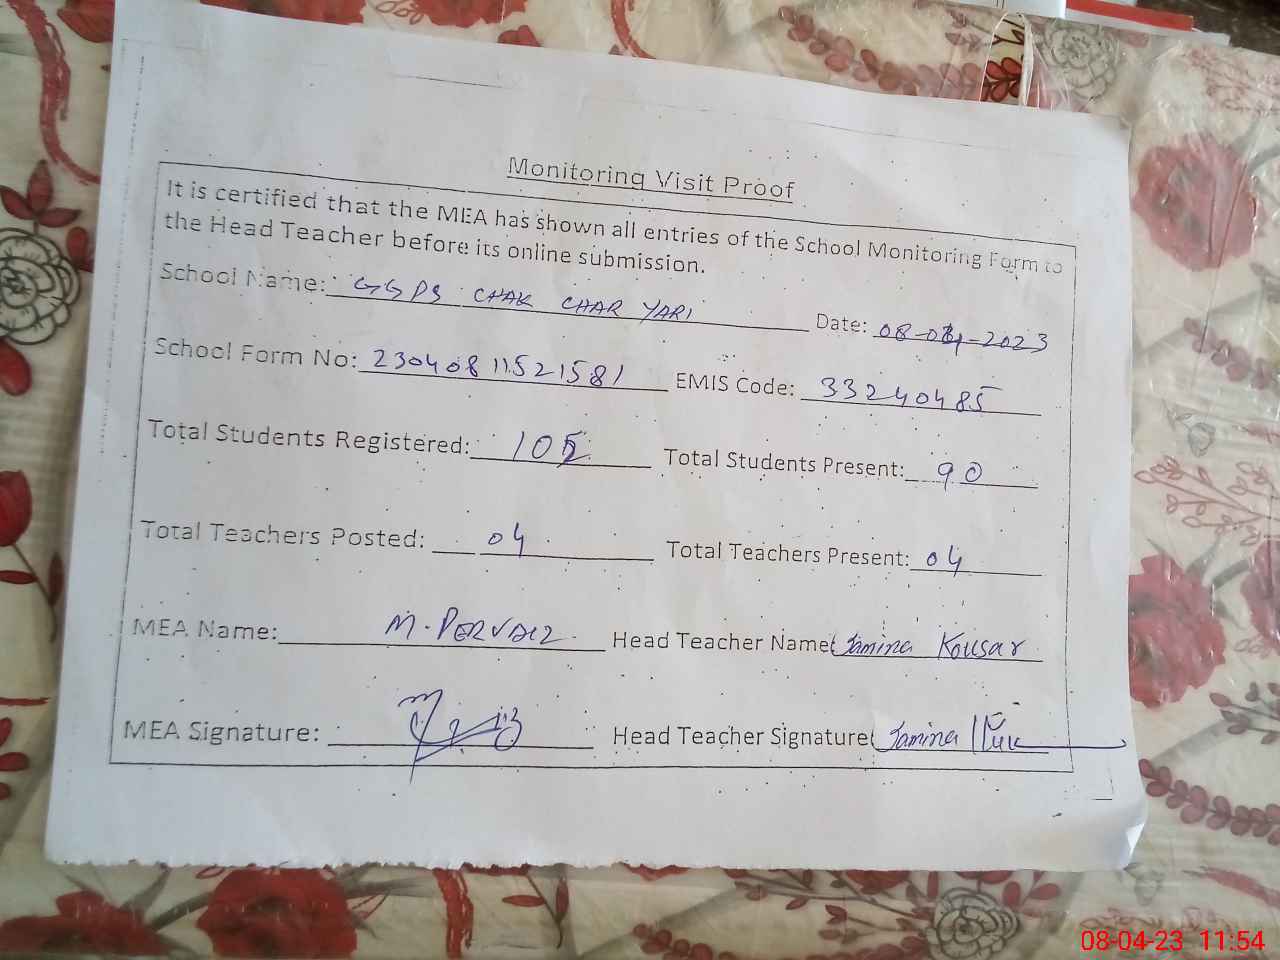 Monitoring Visit Proof
It is certified that the MEA has shown all entries of the School Monitoring Form to
the Head Teacher before its online submission.
School Name: GGPS CHAK CHAR YARI Date: 08-04-2023
School Form No: 23040811521581 EMIS Code: 33240485
Total Students Registered: 105 Total Students Present: 90
Total Teachers Posted: 04 Total Teachers Present: 04
MEA Name: M. PERVAIZ Head Teacher Name: Samina Kousar
MEA Signature: Head Teacher Signature: Samina
08-04-23 11:54